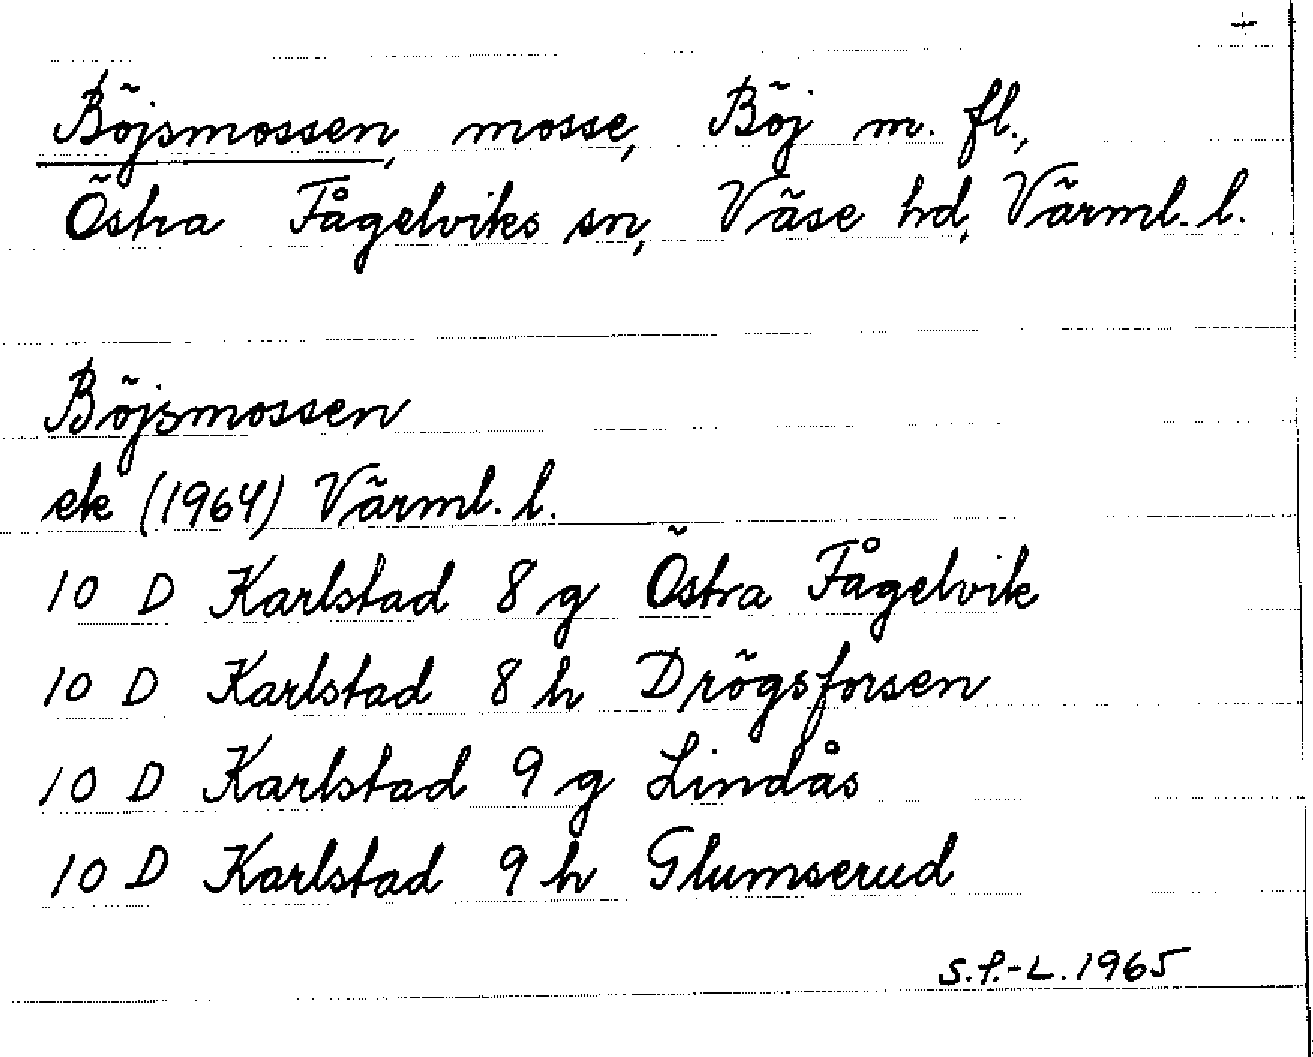 +
Böjsmossen, mosse, Böj m. fl.,
Östra Fågelviks sn, Väse hd, Värml. l.
Böjsmossen
ek (1964) Värml. l.
10 D Karlstad 8 g Östra Fågelvik
10 D Karlstad 8 h Drögsforsen
10 D Karlstad 9 g Lindås
10 D Karlstad 9 h Glumserud
S.P.-L. 1965